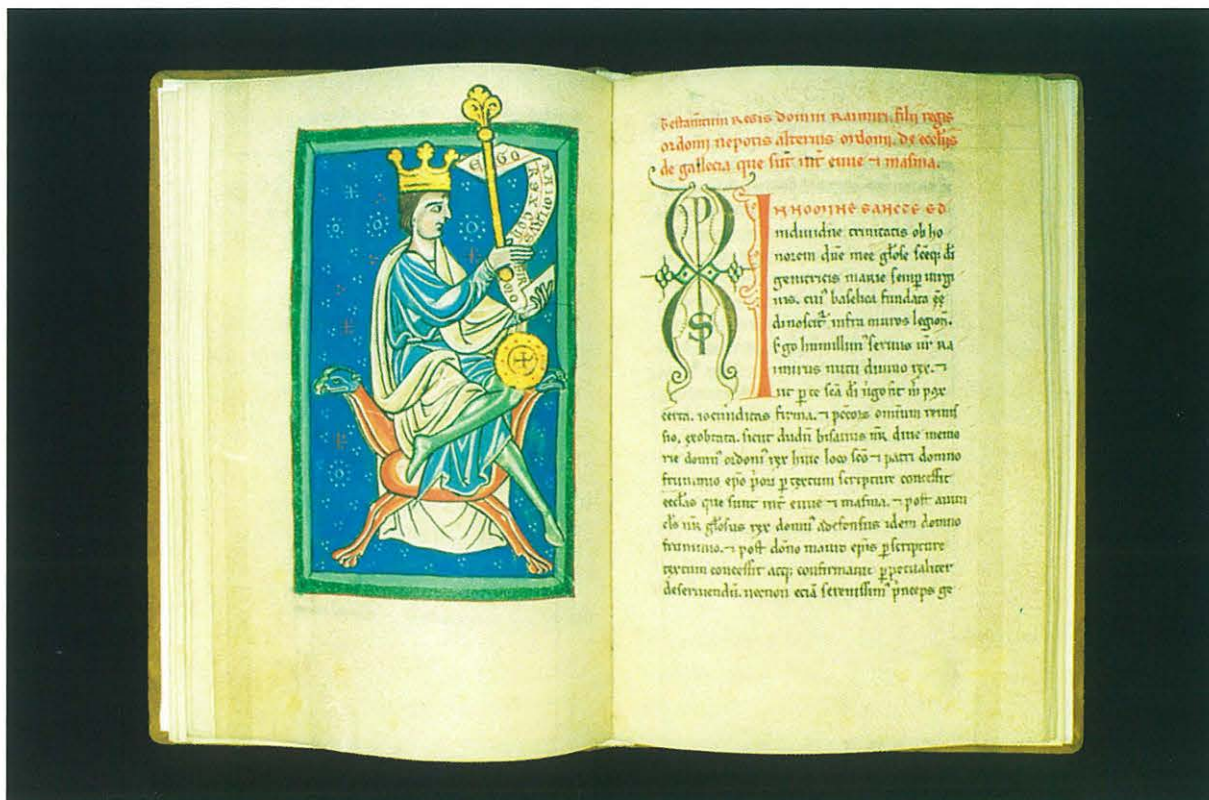 EGO
RANIMIRUS
REX CON
FIR
MO
Testamtum Regis domni Ranimiri. filii regis
ordonii nepotis alterius ordonii. de ecclis
de gallecia que sūt int euue ⁊ masma.
IN NOMINE SANCTE ED
indiuidue trinitatis ob ho
norem dn̄e mee gl̄ose sc̄eq; dī
genitricis marie semp uirgi
nis. cui' baselica fundata ē
dinoscit infra muros legion̄.
Ego humillim' seruus ur̄ Ra
imirus nutu diuino rex. ⁊
ut p te sc̄a dī uigo sit m̄ pax
certa. iocunditas firma. ⁊ pctōrs omnium remis
sio, exobtata. sicut dudū bisauus nr̄ diue memo
rie domn' ordoni' rex huic loco sc̄o ⁊ patri domno
frunimio ep̄o p textum scripture concessit
ecclas que sunt int euue ⁊ masma. ⁊ post auun
cls nr̄ gl̄osus rex domn' adefonsus idem domno
frunimio. ⁊ post dōno mauro epis p scripture
textum concessit atq; confirmauit p petualiter
deseruiendū. necnon eciā serenissim' p̄nceps ge